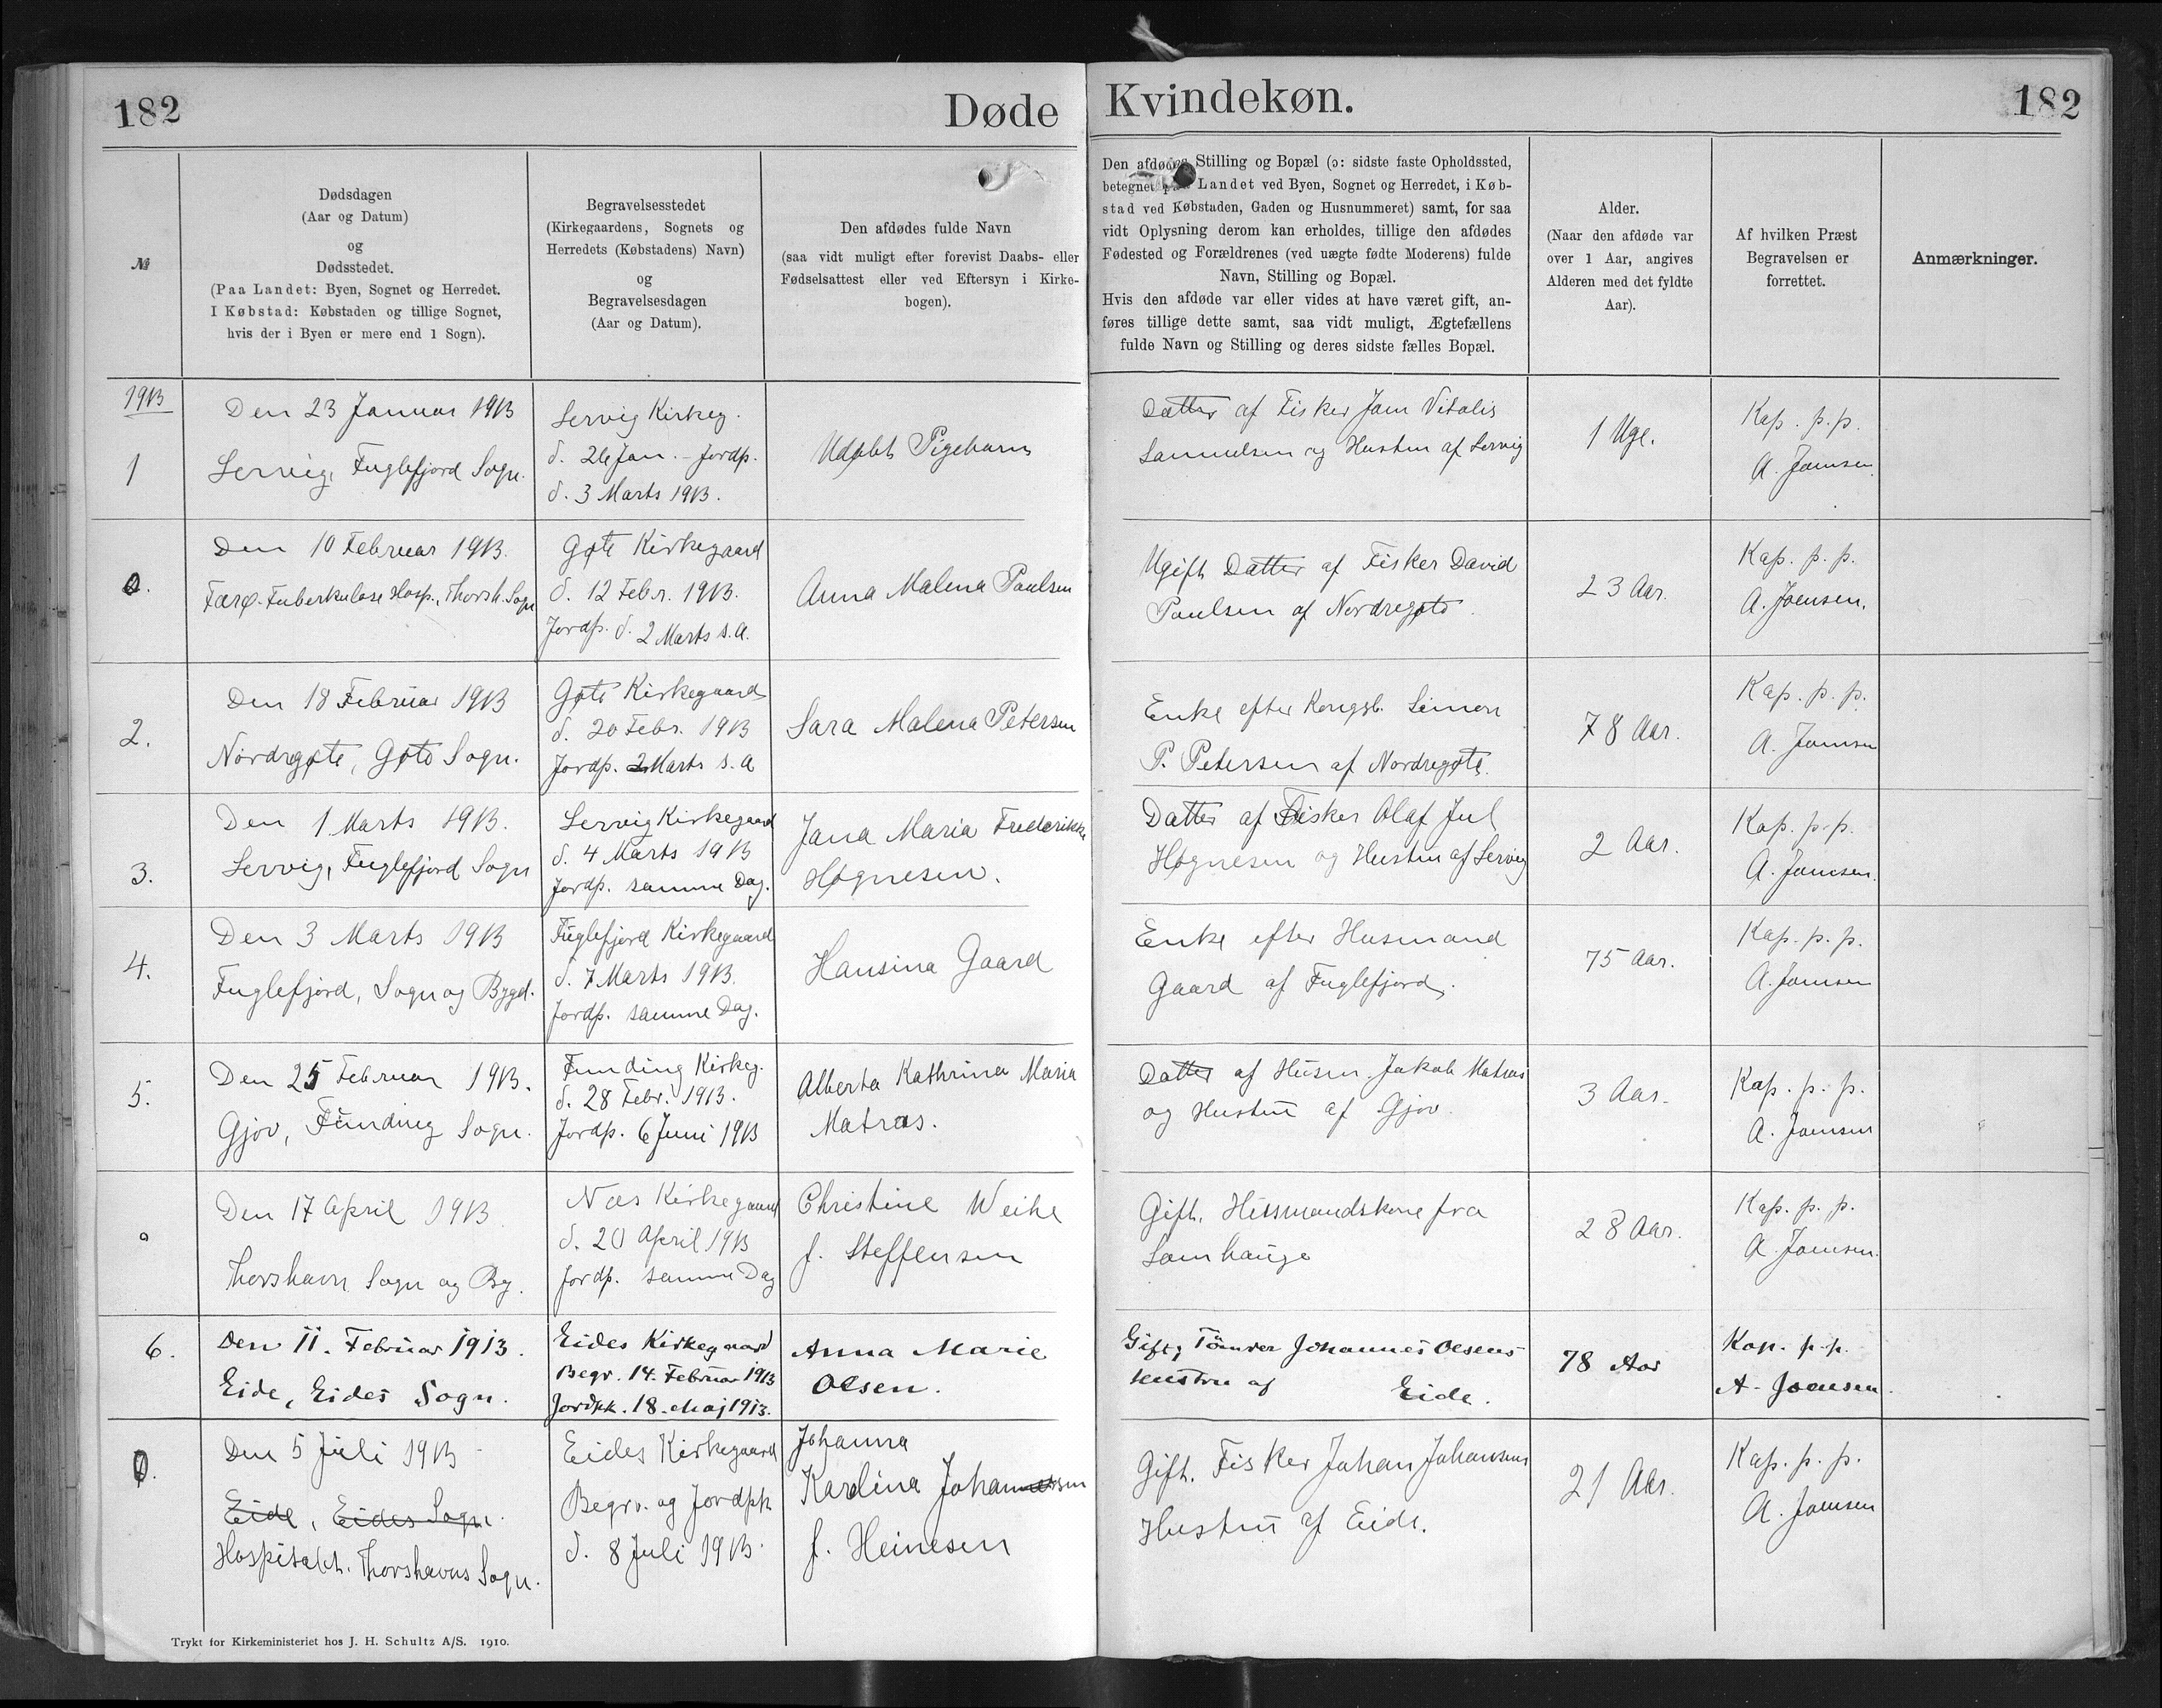 182
Døde
Kvindekøn.
182
№
Dødsdagen
(Aar og Datum)
og
Dødsstedet.
(Paa Landet: Byen, Sognet og Herredet.
I Købstad: Købstaden og tillige Sognet,
hvis der i Byen er mere end 1 Sogn).
Begravelsesstedet
(Kirkegaardens, Sognets og
Herredets (Købstadens) Navn)
og
Begravelsesdagen
(Aar og Datum).
Den afdødes fulde Navn
(saa vidt muligt efter forevist Daabs- eller
Fødselsattest eller ved Eftersyn i Kirke-
bogen).
Den afdødes Stilling og Bopæl (ɔ: sidste faste Opholdssted,
betegnet paa Landet ved Byen, Sognet og Herredet, i Køb-
stad ved Købstaden, Gaden og Husnummeret) samt, for saa
vidt Oplysning derom kan erholdes, tillige den afdødes
Fødested og Forældrenes (ved uægte fødte Moderens) fulde
Navn, Stilling og Bopæl.
Hvis den afdøde var eller vides at have været gift, an-
føres tillige dette samt, saa vidt muligt, Ægtefællens
fulde Navn og Stilling og deres sidste fælles Bopæl.
Alder.
(Naar den afdøde var
over 1 Aar, angives
Alderen med det fyldte
Aar).
Af hvilken Præst
Begravelsen er
forrettet.
Anmærkninger.
1913
1
Den 23 Januar 1913
Lervig, Fuglefjord Sogn.
Lervig Kirkeg.
d. 26 Jan. - Jordp.
d. 3 Marts 1913.
Udøbt Pigebarn
Datter af Fisker Joen Vitalis
Samuelsen og Hustru af Lervig
1 Uge.
Kap. p. p.
A. Joensen
0.
Den 10 Februar 1913.
Færø. Tuberkulose Hosp., Thorsh. Sogn
Gøte Kirkegaard
d. 12 Febr. 1913.
Jordp. d. 2 Marts s. A.
Anna Malena Poulsen
Ugift Datter af Fisker David
Poulsen af Nordregøte.
23 Aar.
Kap. p. p.
A. Joensen.
2.
Den 18 Februar 1913
Nordregøte, Gøte Sogn.
Gøte Kirkegaard
d. 20 Febr. 1913
Jordp. 2 Marts s. A
Sara Malena Petersen
Enke efter Kongsb. Simon
P. Petersen af Nordregøte.
78 Aar.
Kap. p. p.
A. Joensen
3.
Den 1 Marts 1913.
Lervig, Fuglefjord Sogn
Lervig Kirkegaard
d. 4 Marts 1913
Jordp. samme Dag.
Jana Maria Frederikke
Høgnesen.
Datter af Fisker Olaf Jul
Høgnesen og Hustru af Lervig
2 Aar.
Kap. p. p.
A. Joensen.
4.
Den 3 Marts 1913
Fuglefjord, Sogn og Bygd.
Fuglefjord Kirkegaard
d. 7 Marts 1913.
Jordp. samme Dag.
Hansina Gaard
Enke efter Husmand
Gaard af Fuglefjord.
75 Aar.
Kap. p. p.
A. Joensen
5.
Den 25 Februar 1913.
Gjov, Funding Sogn.
Funding Kirkeg.
d. 28 Febr. 1913.
Jordp. 6 Juni 1913
Alberta Kathrina Maria
Matras.
Datter af Husm. Jakob Matras
og Hustru af Gjov.
3 Aar.
Kap. p. p.
A. Joensen
0
Den 17 April 1913
Thorshavn Sogn og By.
Næs Kirkegaard
d. 20 April 1913
Jordp. samme Dag
Christine Weihe
f. Steffensen
Gift, Husmandskone fra
Lamhauge
28 Aar.
Kap. p. p.
A. Joensen.
6.
Den 11. Februar 1913.
Eide, Eides Sogn.
Eides Kirkegaard
Begr. 14. Februar 1913
Jordpk. 18. Maj 1913.
Anna Marie
Olsen.
Gift, Tömrer Johannes Olsens
Hustru af Eide.
78 Aar
Kap. p. p.
A. Joensen.
0.
Den 5 Juli 1913
Eide, Eides Sogn.
Hospitalet. Thorshavns Sogn.
Eides Kirkegaard
Begrv. og Jordpk
d. 8 Juli 1913.
Johanna
Karolina Johannessen
f. Heinesen
Gift. Fisker Johan Johansens
Hustru af Eide.
21 Aar.
Kap. p. p.
A. Joensen
Trykt for Kirkeministeriet hos J. H. Schultz A/S. 1910.